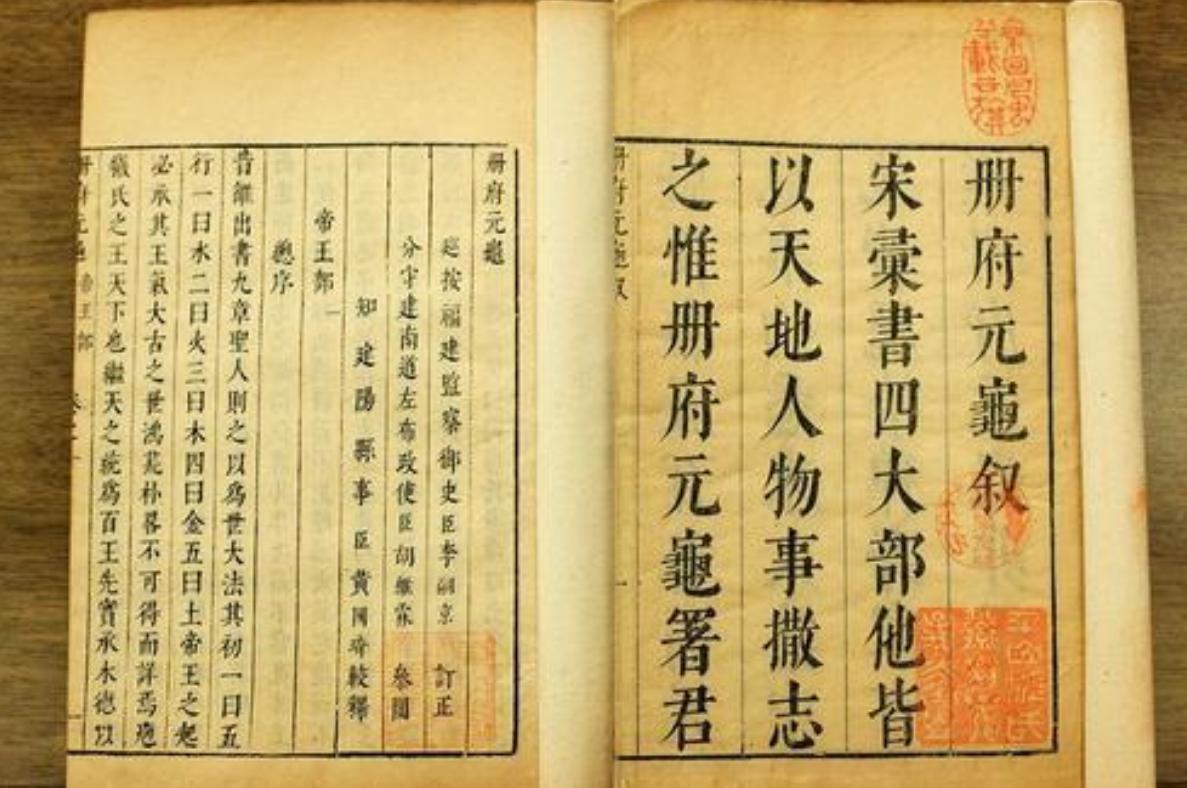 册府元龜叙
宋彙書四大部他皆
以天地人物事撒志
之惟册府元龜署君
册府元龜叙
一
册府元龜
巡按福建監察御史臣李嗣京 訂正
分守建南道左布政使臣胡維霖 參閱
知建陽縣事臣黃國琦較釋
帝王部 一
總序
昔雒出書九章聖人則之以爲世大法其初一曰五
行一曰水二曰火三曰木四曰金五曰土帝王之起
必承其王氣大古之世鴻荒朴畧不可得而詳焉庖
犧氏之王天下也繼天之統爲百王先實承木德以
册府元龜 帝王部 卷之一 一